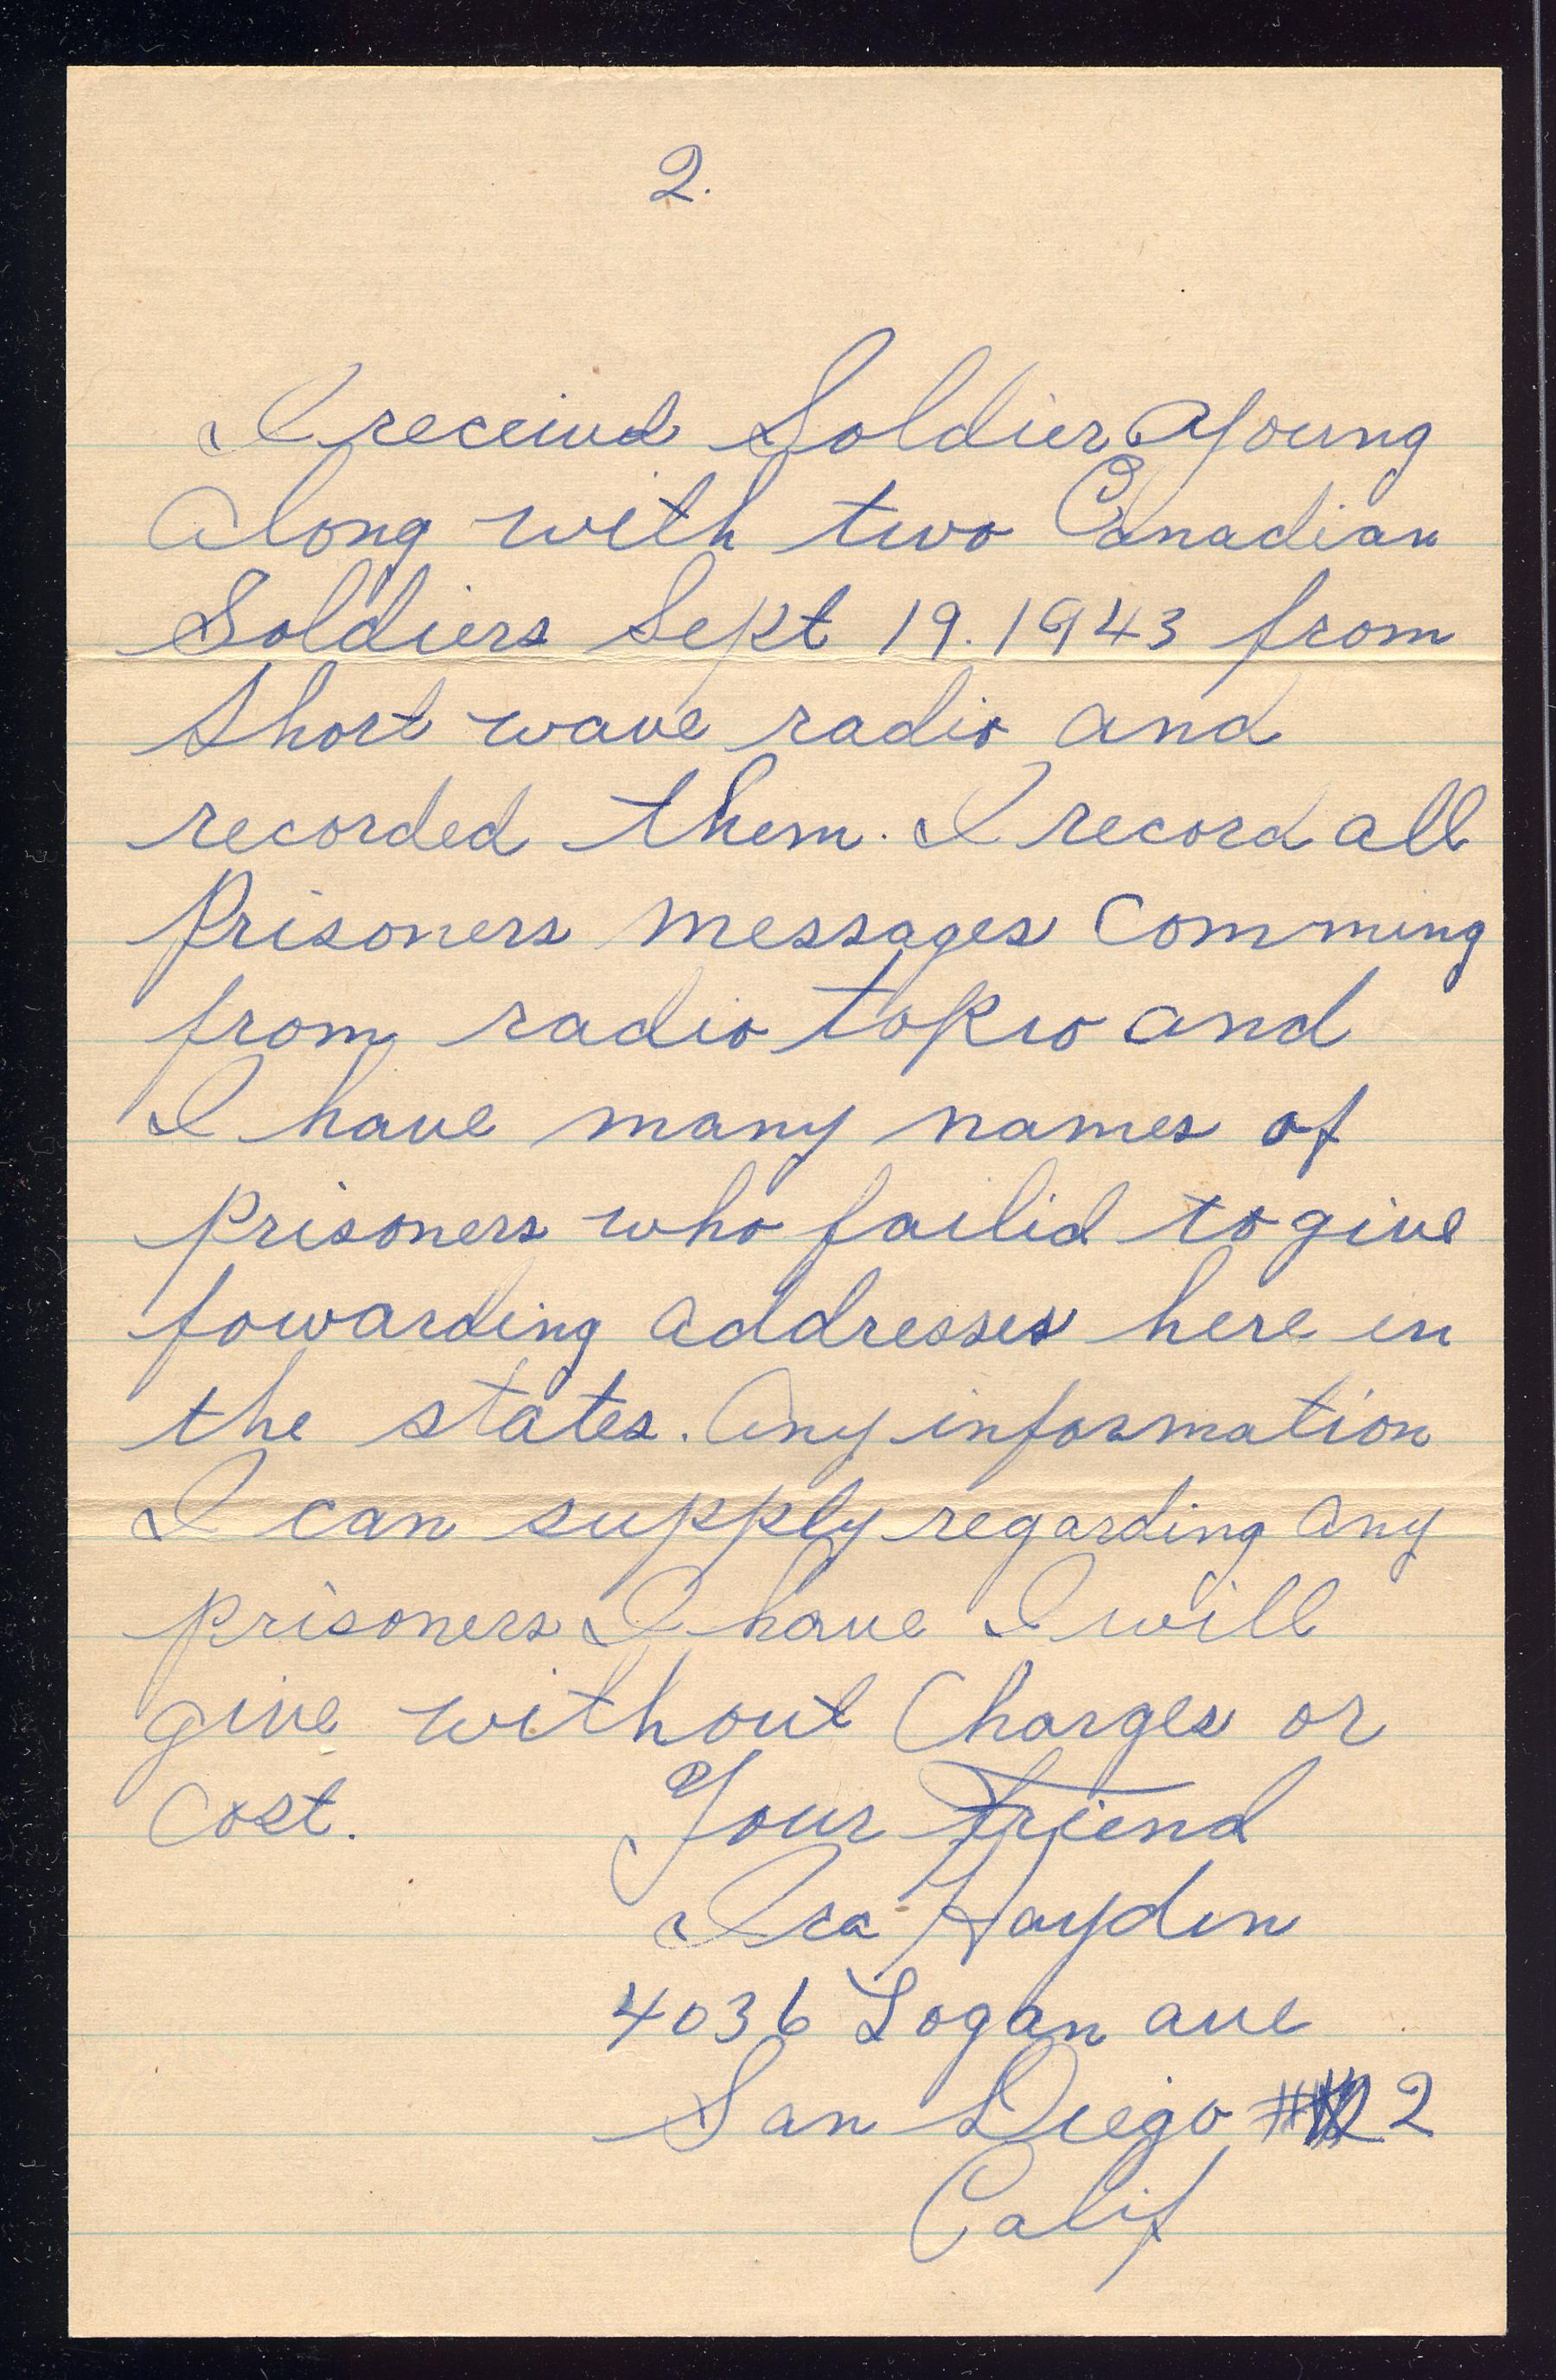 2.
I received Soldier Young
along with two Canadian
Soldiers Sept 19.1943 from
Short wave radio and
recorded them. I record all
Prisoners messages Comming
from radio tokio and
I have many names of
prisoners who failid to give
fowarding addresses here in
the states. Any information
I can supply regarding any
prisoners I have I will
give without Charges or
Cost. Your Friend
Ira Hayden
4036 Logan ave
San Diego # 2
Calif